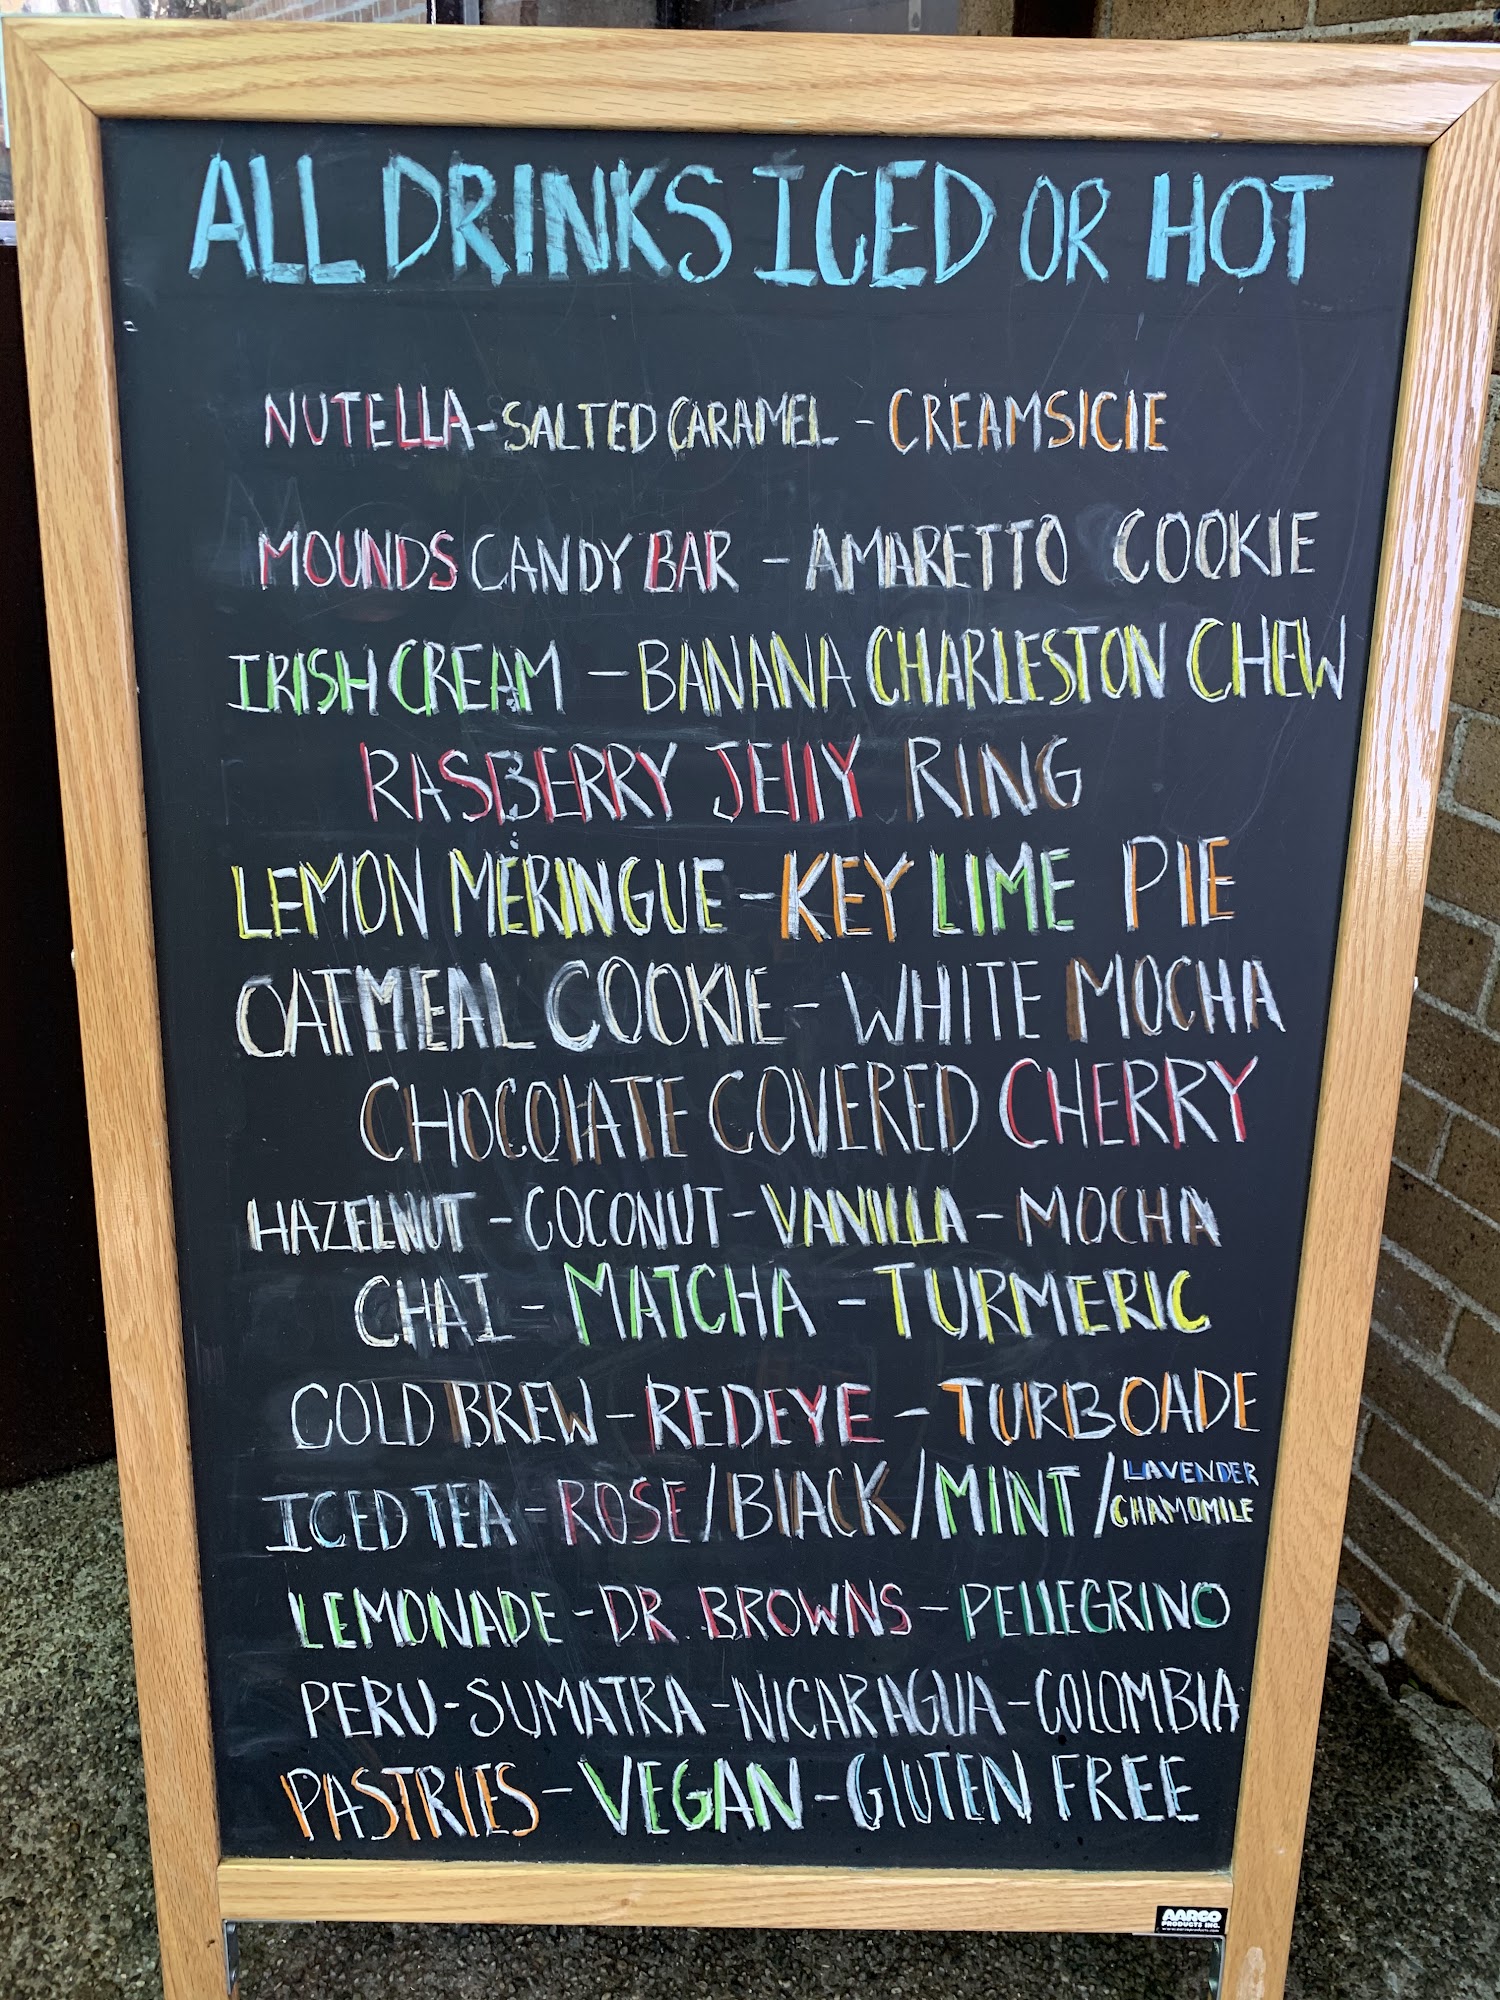 ALL DRINKS ICED OR HOT
NUTELLA - SALTED CARAMEL - CREAMSICIE
MOUNDS CANDY BAR - AMARETTO COOKIE
IRISH CREAM - BANANA CHARLESTON CHEW
RASBERRY JEllY RING
LEMON MERINGUE - KEY LIME PIE
OATMEAL COOKIE - WHITE MOCHA
CHOCOlATE COVERED CHERRY
HAZELNUT - COCONUT - VANILLA - MOCHA
CHAI - MATCHA - TURMERIC
COLD BREW - REDEYE - TURBOADE
ICED TEA - ROSE / BlACK / MINT / LAVENDER
CHAMOMILE
LEMONADE - DR. BROWNS - PELLEGRINO
PERU - SUMATRA - NICARAGUA - COLOMBIA
PASTRIES - VEGAN - GLUTEN FREE
AARCO
PRODUCTS INC.
www.aarcoproducts.com